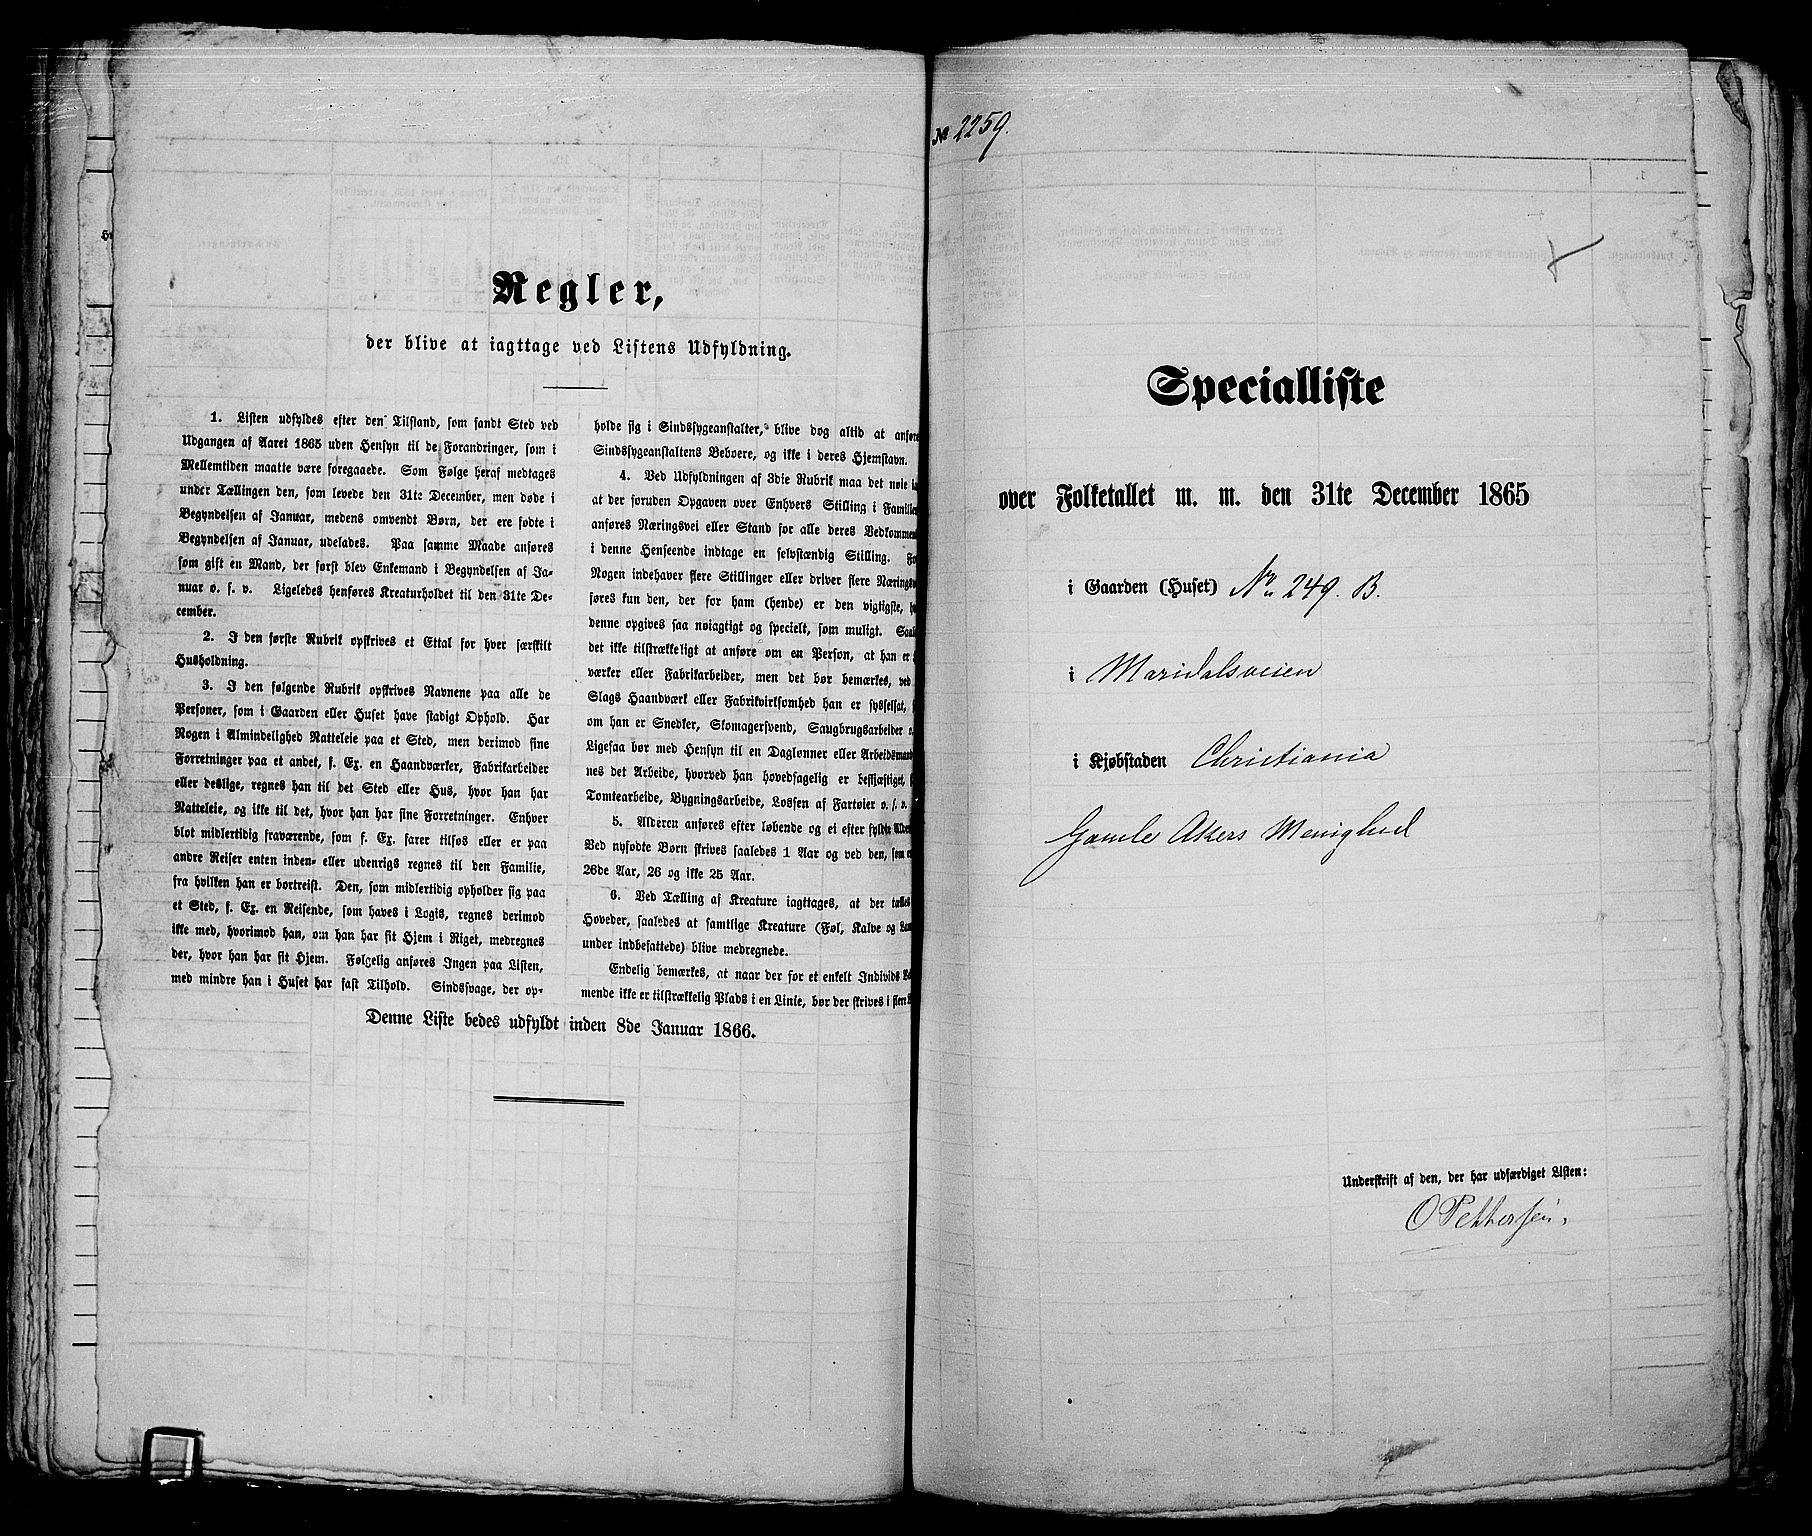 Regler,
der blive at iagttage ved Listens Udfyldning.
1. Listen udfyldes efter den Tilstand, som fandt Sted ved
Udgangen af Aaret 1865 uden Hensyn til de Forandringer, som i
Mellemtiden maatte være foregaaede. Som Følge heraf medtages
under Tællingen den, som levede den 31te December, men døde i
Begyndelsen af Januar, medens omvendt Børn, der ere fødte i
Begyndelsen af Januar, udelades. Paa samme Maade anføres
som gift en Mand, der først blev Enkemand i Begyndelsen af Ja-
nuar o. s. v. Ligeledes henføres Kreaturholdet til den 31te De-
cember.
2. I den første Rubrik opskrives et Ettal for hver særskilt
Husholdning.
3. I den følgende Rubrik opskrives Navnene paa alle de
Personer, som i Gaarden eller Huset have stadigt Ophold. Har
Nogen i Almindelighed Natteleie paa et Sted, men derimod sine
Forretninger paa et andet, f. Ex. en Haandværker, Fabrikarbeider
eller deslige, regnes han til det Sted eller Hus, hvor han har
Natteleie, og ikke til det, hvor han har sine Forretninger. Enhver
blot midlertidig fraværende, som f. Ex. farer tilsøs eller er paa
andre Reiser enten inden- eller udenrigs regnes til den Familie,
fra hvilken han er bortreist. Den, som midlertidig opholder sig paa
et Sted, f. Ex. en Reisende, som haves i Logis, regnes derimod
ikke med, hvorimod han, om han har sit Hjem i Riget, medregnes
der, hvor han har sit Hjem. Følgelig anføres Ingen paa Listen,
med mindre han i Huset har fast Tilhold. Sindssvage, der op-
holde sig i Sindssygeanstalter, blive dog altid at anføre
Sindssygeanstaltens Beboere, og ikke i deres Hjemstavn.
4. Ved Udfyldningen af 3die Rubrik maa det nøie
at der foruden Opgaven over Enhvers Stilling i Familien
anføres Næringsvei eller Stand for alle deres Vedkommen
i denne Henseende indtage en selvstændig Stilling.
Nogen indehaver flere Stillinger eller driver flere Nærings
føres kun den, der for ham (hende) er den vigtigste,
denne opgives saa nøiagtigt og specielt, som muligt.
det ikke tilstrækkeligt at anføre om en Person, at han er
værker eller Fabrikarbeider, men det bør bemærkes, ved
Slags Haandværk eller Fabrikvirksomhed han er sysselsat,
om han er Snedker, Skomagersvend, Saugbrugsarbeider
Ligesaa bør med Hensyn til en Dagløner eller Arbeidsmand
nes det Arbeide, hvorved han hovedsagelig er beskjæftiget,
Tomtearbeide, Bygningsarbeide, Losfen af Fartøier o. s. v.
5. Alderen anføres efter løbende og ei efter fyldte
Ved nyfødte Børn skrives saaledes 1 Aar og ved den, som
26de Aar, 26 og ikke 25 Aar.
6. Ved Tælling af Kreature iagttages, at der
Hoveder, saaledes at samtlige Kreature (Føl, Kalve og
under indbefattede) blive medregnede.
Endelig bemærkes, at naar der for et enkelt Individs
mende ikke er tilstrækkelig Plads i en Linie, bør der skrives i flere
Denne Liste bedes udfyldt inden 8de Januar 1866.
No 2259.
Specialliste
over Folketallet m. m. den 31te December 1865
i Gaarden (Huset) No 249. B.
i Maridalsveien
i Kjøbstaden Christiania
Gamle Akers Menighed
Underskrift af den, der har udfærdiget Listen:
O Pettersen